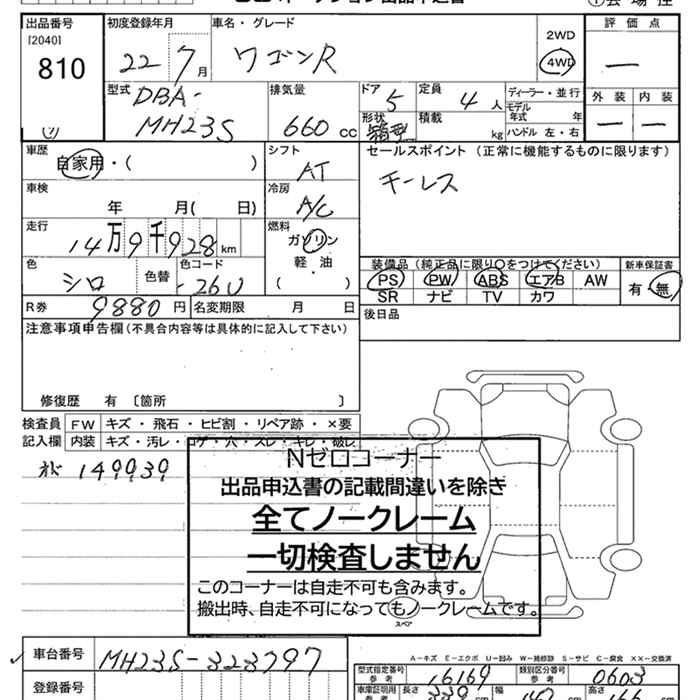 出品番号
[2040]
810
初度登録年月
22 7月
車名・グレード
ワゴンR
2WD
4WD
評価点
外装 内装
型式
DBA-
MH23S
排気量
660 cc
ドア
5
定員
4人
ディーラー・並行
モデル
年式 年
ハンドル 左・右
形状
箱型
積載
kg
車歴
自家用・( )
シフト
AT
セールスポイント(正常に機能するものに限ります)
キーレス
車検
年 月( 日)
冷房
A/C
走行
14万9千928km
燃料
ガソリン
軽・油
( )
色
シロ
色替
色コード
-26U
装備品(純正品に限り○をつけてください)
PS PW ABS エアB AW
SR ナビ TV カワ
新車保証書
有・無
R券 9880円
名変期限 月 日
後日品
注意事項申告欄(不具合内容等は具体的に記入して下さい)
修復歴 有〔箇所 〕
検査員
記入欄
FW キズ・飛石・ヒビ割・リペア跡・×要
内装 キズ・汚レ・コゲ・穴・スレ・キレ・破レ
149939
Nゼロコーナー
出品申込書の記載間違いを除き
全てノークレーム
一切検査しません
このコーナーは自走不可も含みます。
搬出時、自走不可になってもノークレームです。
スペア
車台番号 MH23S-323797
登録番号
A-キズ E-エクボ U-凹み W-補修跡 S-サビ C-腐食 XX-交換済
型式指定番号
参考
16169
類別区分番号
参考
0603
車庫証明用
参考
長さ
339
幅
147
高さ